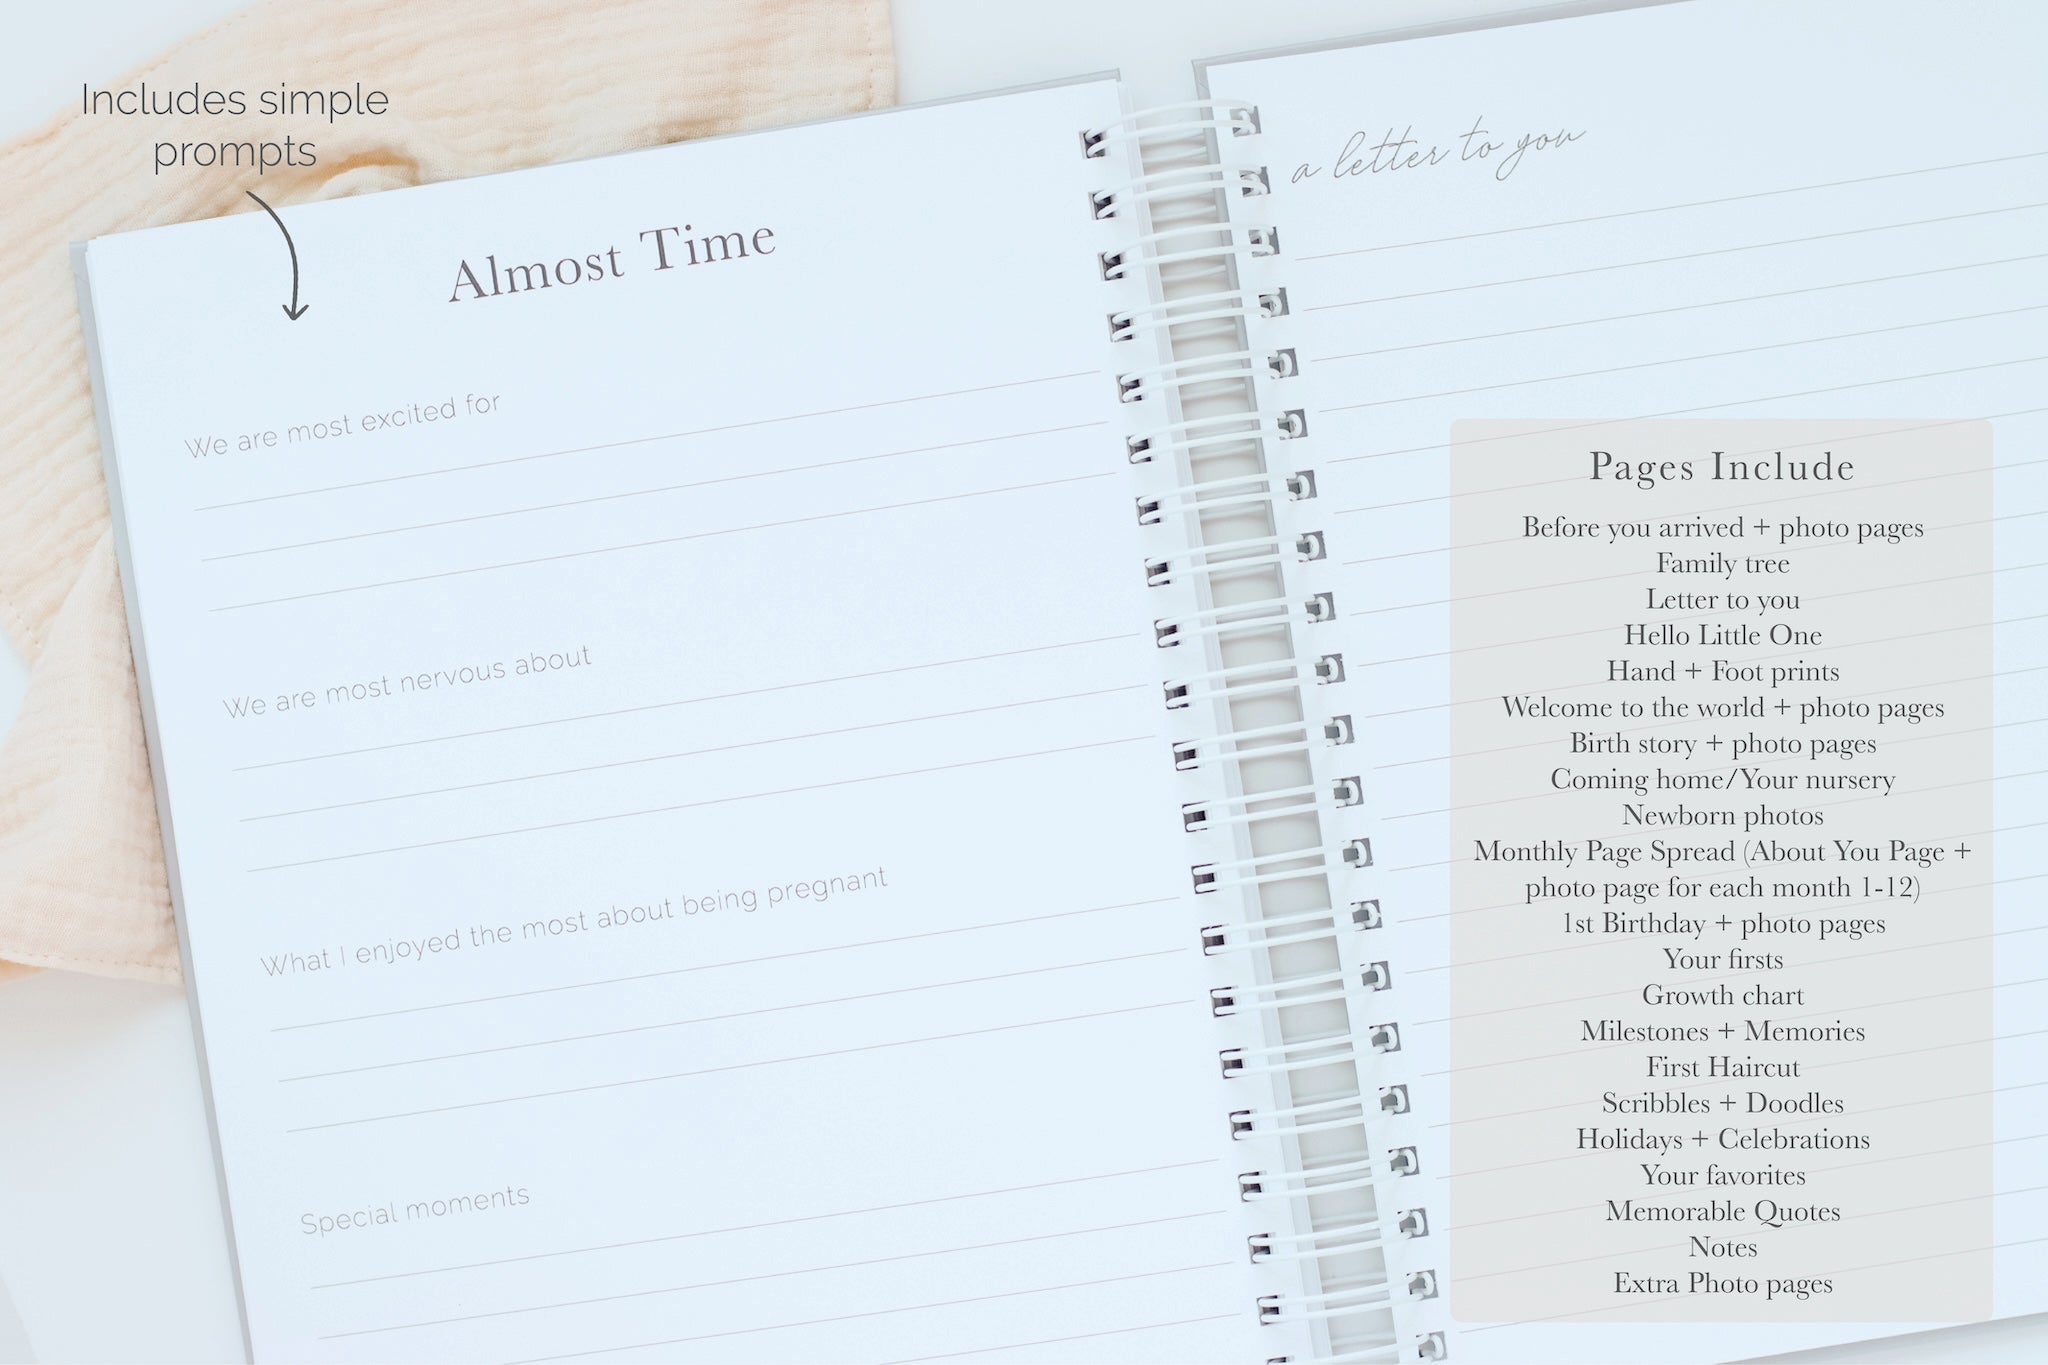 Includes simple
prompts
Almost Time
We are most excited for
We are most nervous about
What I enjoyed the most about being pregnant
Special moments
a letter to you
Pages Include
Before you arrived + photo pages
Family tree
Letter to you
Hello Little One
Hand + Foot prints
Welcome to the world + photo pages
Birth story + photo pages
Coming home/Your nursery
Newborn photos
Monthly Page Spread (About You Page +
photo page for each month 1-12)
1st Birthday + photo pages
Your firsts
Growth chart
Milestones + Memories
First Haircut
Scribbles + Doodles
Holidays + Celebrations
Your favorites
Memorable Quotes
Notes
Extra Photo pages